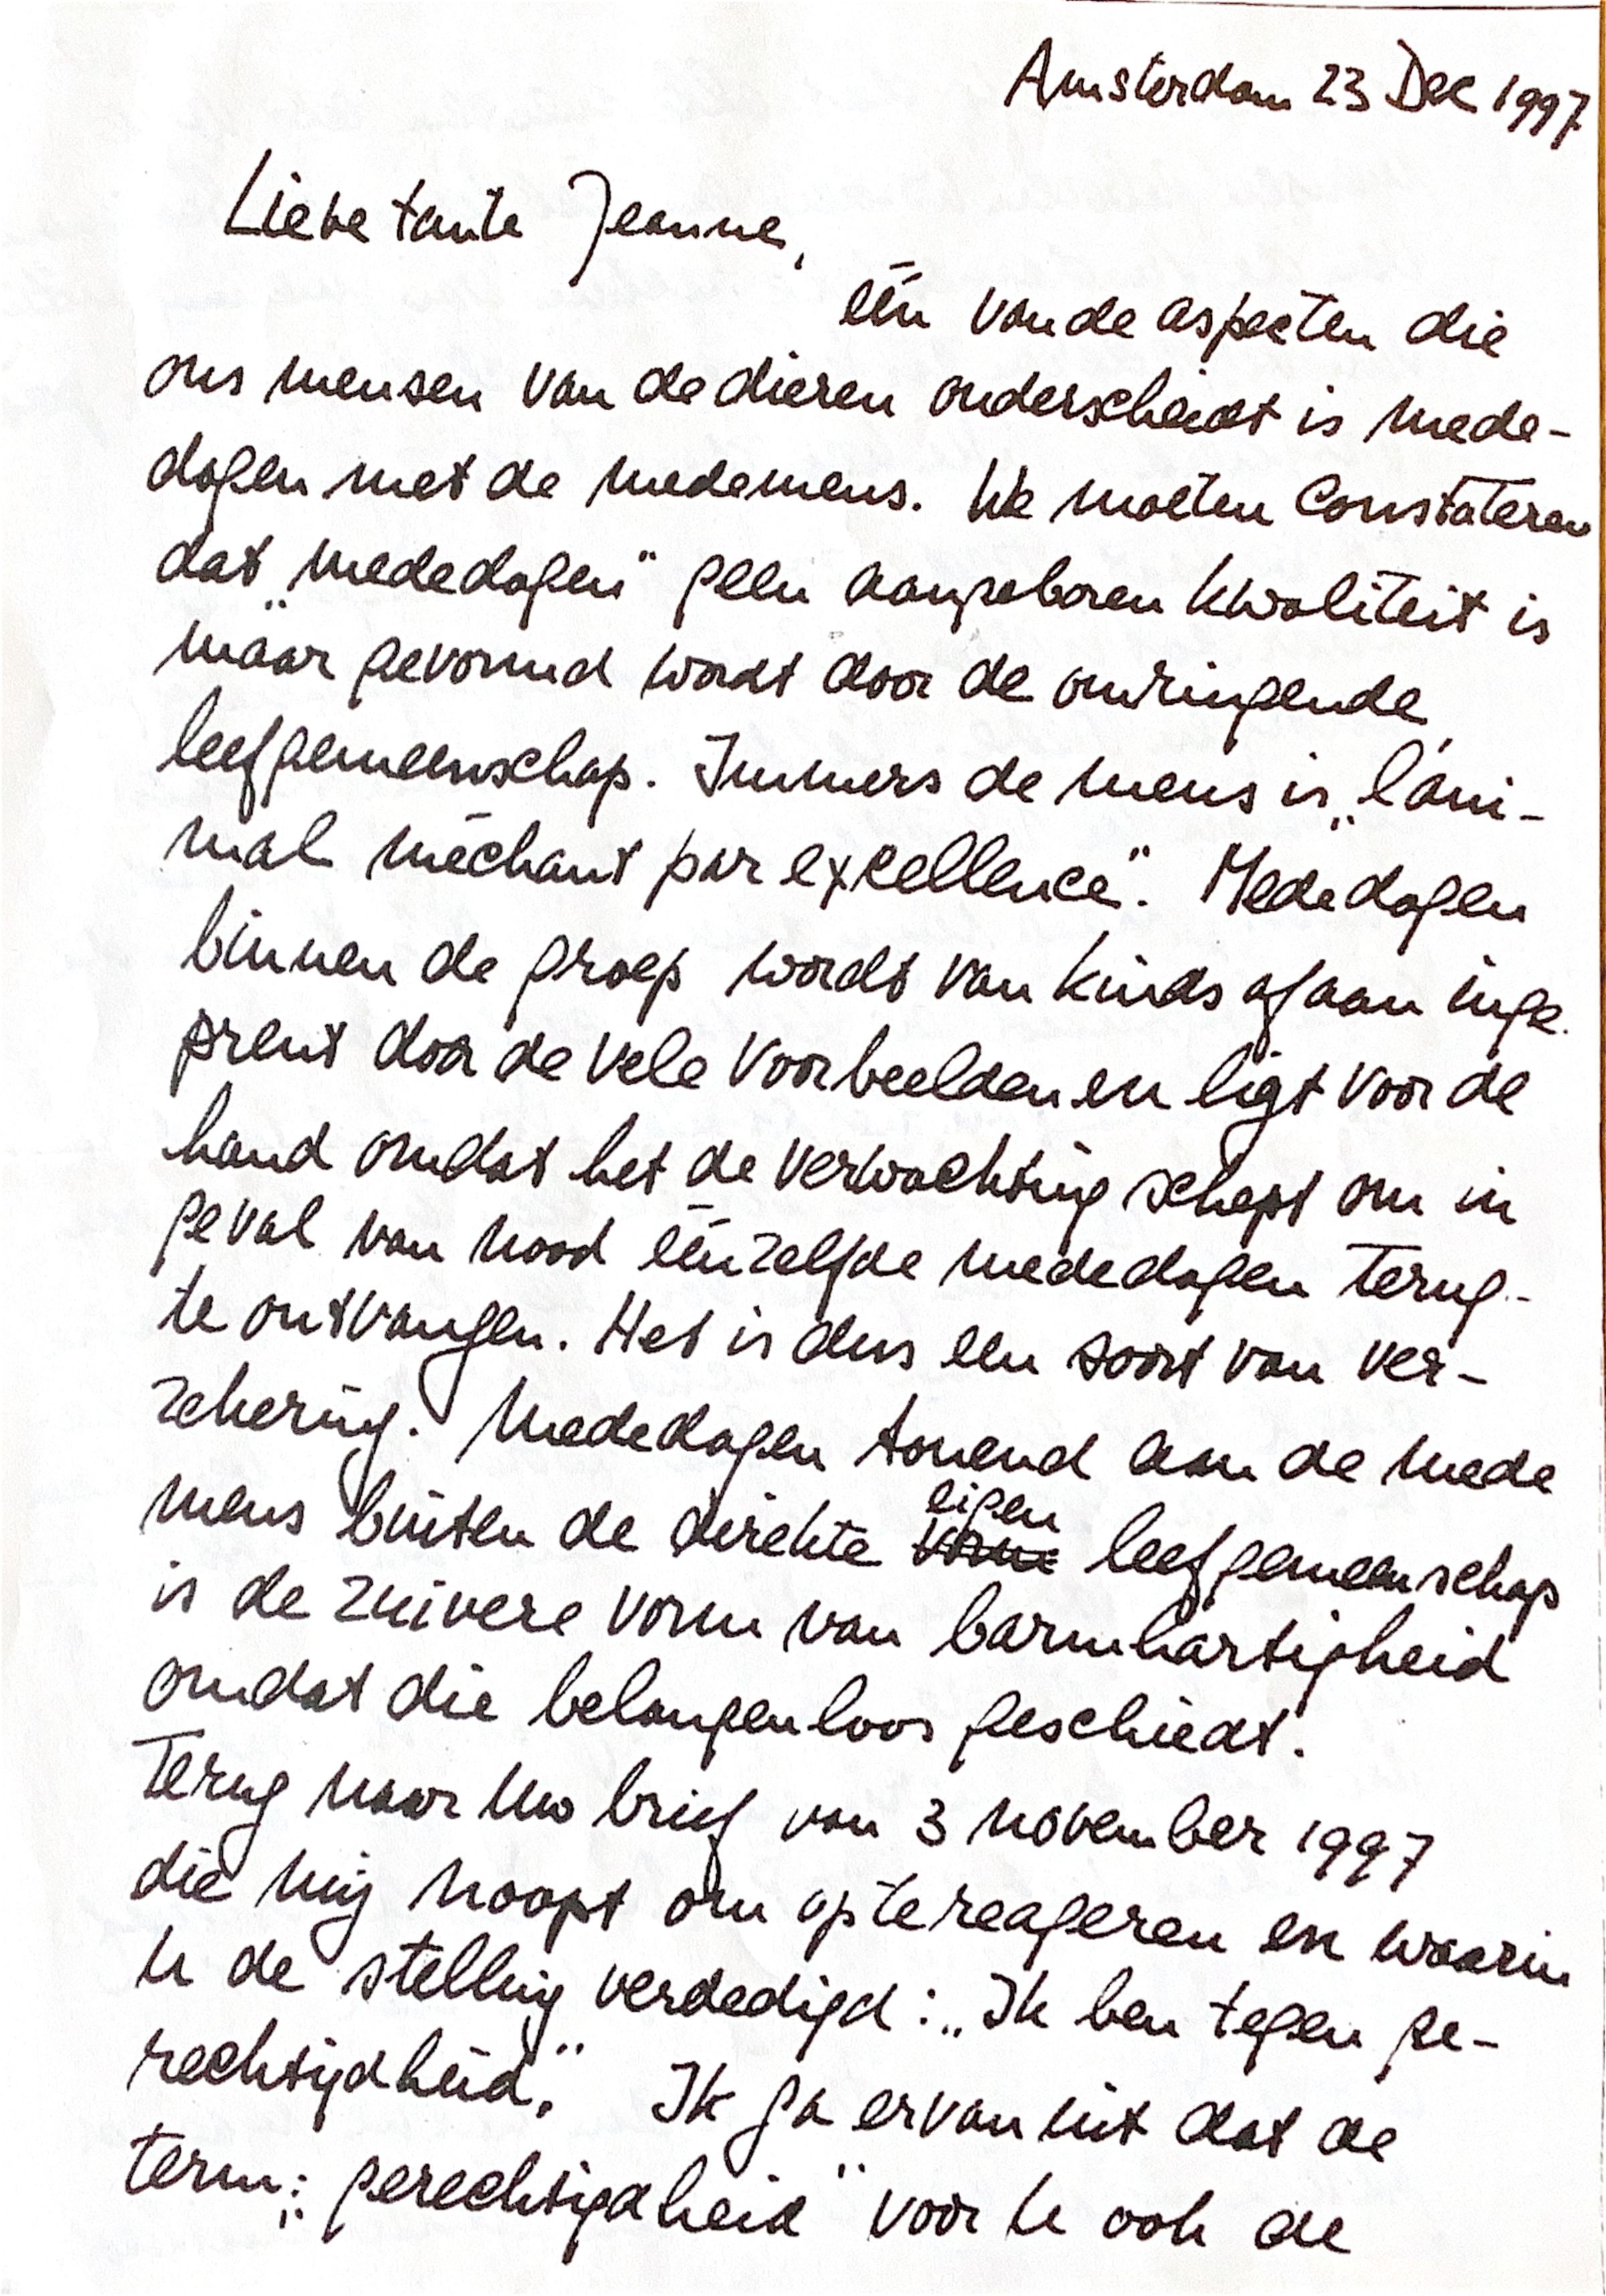 Amsterdam 23 Dec 1997
Lieve tante Jeanne,
één van de aspecten die
ons mensen van de dieren onderscheidt is mede-
dogen met de medemens. We moeten Constateren
dat „mededogen" geen aangeboren kwaliteit is
maar gevormd wordt door de omringende
leefgemeenschap. Immers de mens is „l'ani-
mal méchant par excellence". Mededogen
binnen de groep wordt van kinds af aan inge-
prent door de vele voorbeelden en ligt voor de
hand omdat het de verwachting schept om in
geval van nood éénzelfde mededogen terug-
te ontvangen. Het is dus een soort van ver-
zekering. Mededogen tonend aan de mede
mens buiten de direkte vorm eigen leefgemeenschap
is de zuivere vorm van barmhartigheid
omdat die belangenloos geschiedt.
Terug naar Uw brief van 3 november 1997
die mij noopt om op te reageren en waarin
U de stelling verdedigd: „Ik ben tegen ge-
rechtigdheid." Ik ga ervan uit dat de
term: „gerechtigdheid" voor U ook de